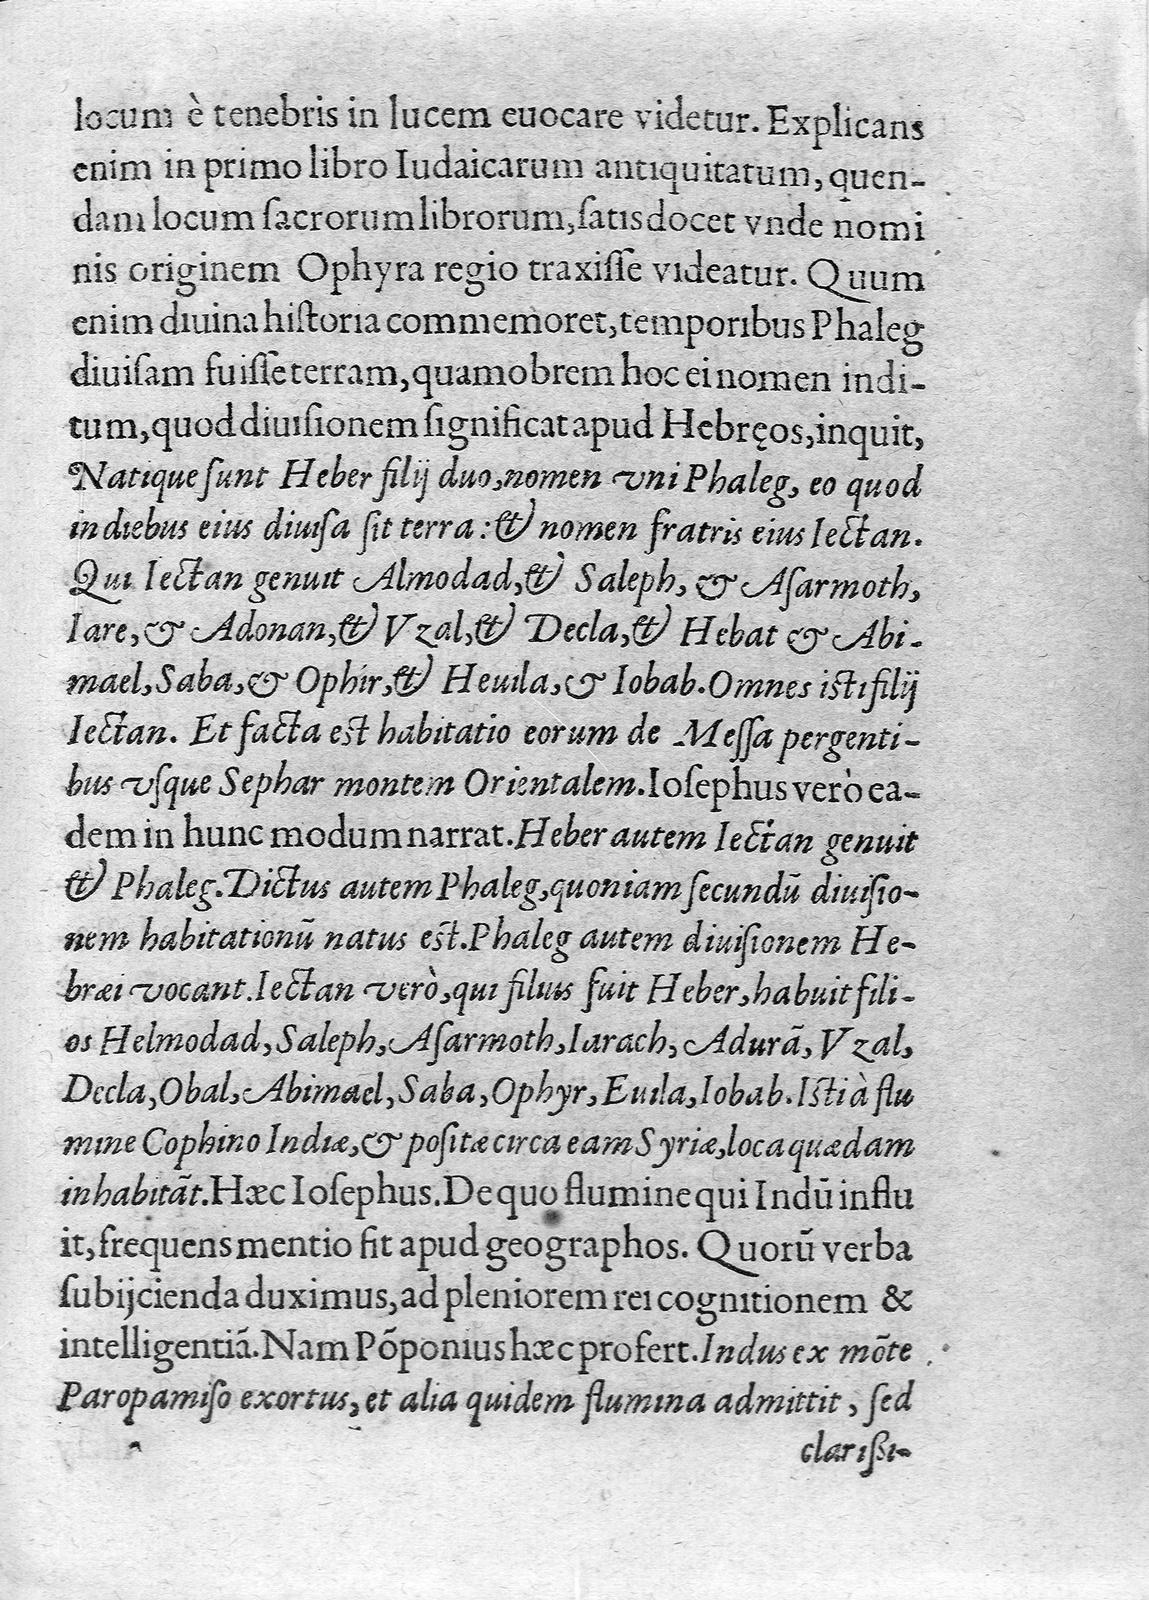 locum è tenebris in lucem euocare videtur. Explicans
enim in primo libro Iudaicarum antiquitatum, quen-
dam locum ſacrorum librorum, ſatis docet vnde nomi
nis originem Ophyra regio traxiſſe videatur. Quum
enim diuina hiſtoria commemoret, temporibus Phaleg
diuiſam fuiſſe terram, quamobrem hoc ei nomen indi-
tum, quod diuiſionem ſignificat apud Hebręos, inquit,
Natique ſunt Heber filij duo, nomen vni Phaleg, eo quod
in diebus eius diuiſa ſit terra: & nomen fratris eius Iectan.
Qui Iectan genuit Almodad, & Saleph, & Aſarmoth,
Iare, & Adonan, & Vzal, & Decla, & Hebat & Abi-
mael, Saba, & Ophir, & Heuila, & Iobab. Omnes iſti filij
Iectan. Et facta eſt habitatio eorum de Meſſa pergenti-
bus vſque Sephar montem Orientalem. Ioſephus verò ea-
dem in hunc modum narrat. Heber autem Iectan genuit
& Phaleg. Dictus autem Phaleg, quoniam ſecundū diuiſio-
nem habitationū natus eſt. Phaleg autem diuiſionem He-
bræi vocant. Iectan verò, qui filius fuit Heber, habuit fili-
os Helmodad, Saleph, Aſarmoth, Iarach, Adurā, Vzal,
Decla, Obal, Abimael, Saba, Ophyr, Euila, Iobab. Iſti à flu
mine Cophino Indiæ, & poſitæ circa eam Syriæ, loca quædam
inhabitāt. Hæc Ioſephus. De quo flumine qui Indū influ
it, frequens mentio fit apud geographos. Quorū verba
ſubijcienda duximus, ad pleniorem rei cognitionem &
intelligentiā. Nam Pōponius hæc profert. Indus ex mōte
Paropamiſo exortus, et alia quidem flumina admittit, ſed
clariſſi-